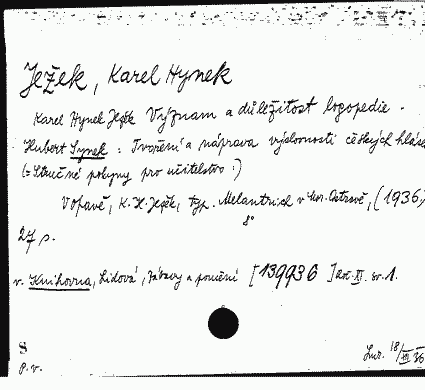 Ježek, Karel Hynek
Karel Hynek Ježek Význam a důležitost logopedie.
Hubert Synek: Tvoření a náprava výslovnosti českých hlásek
(= Stručné pokyny pro učitelstvo:)
V Opavě, K. H. Ježek, typ. Melantrich v Mor. Ostravě, (1936)
8°
27 s.
v. Knihovna, Lidová, Zábavy a poučení [139936] roč. XI. sv. 1.
S
p. v.
18/VII 36